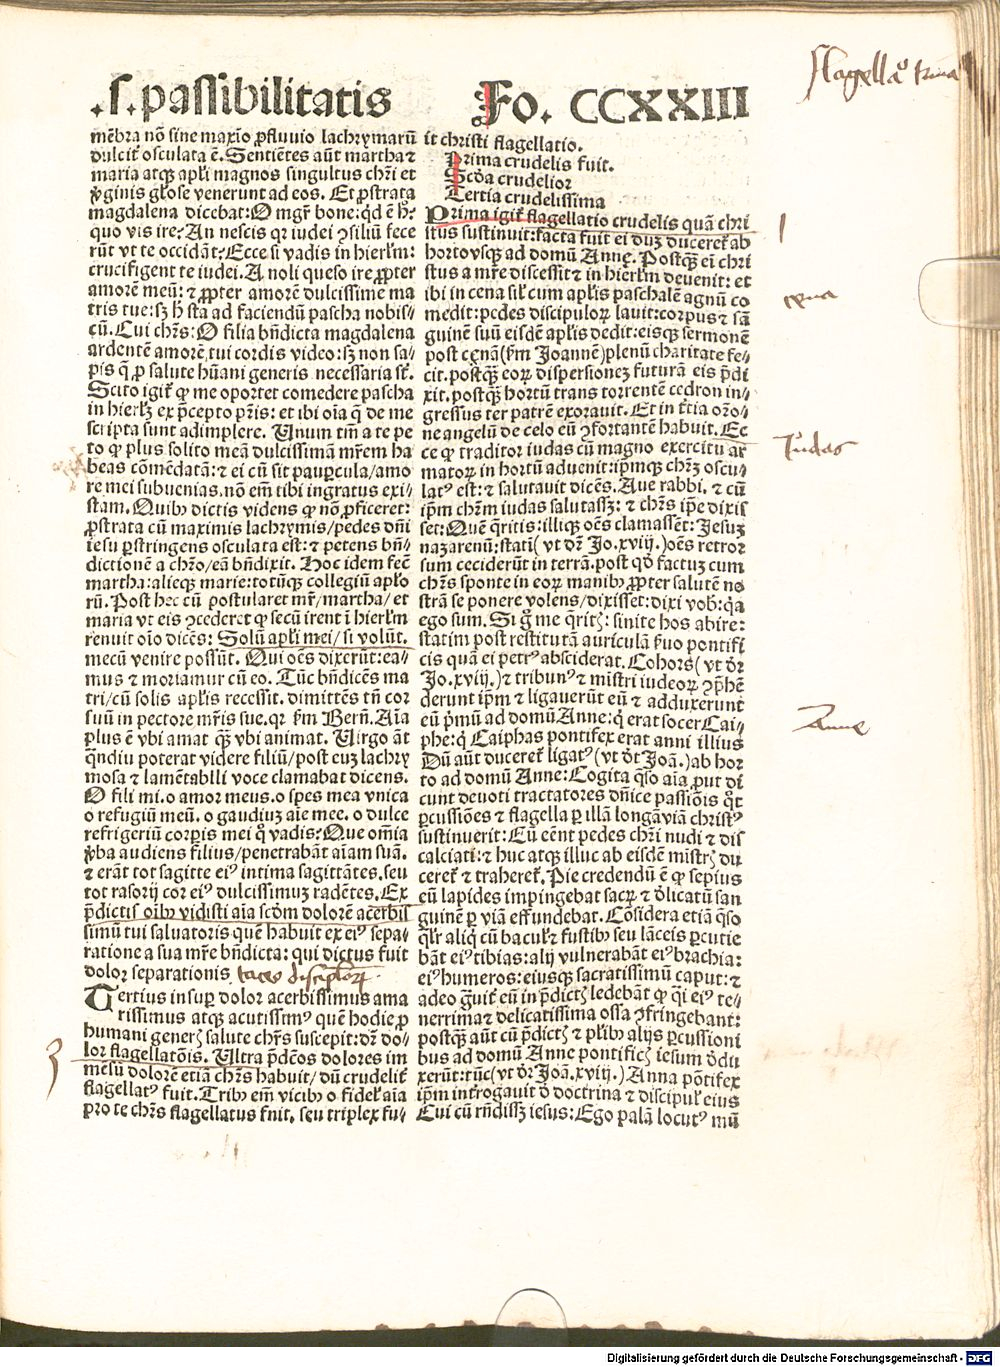 .s. passibilitatis
Fo. CCXXIII
mēbra nō sine maxīo ꝓfluuio lachrymarū
dulcit᷑ osculata ē. Sentiētes aūt martha ⁊
maria atqꝫ apl̄i magnos singultus chr̄i et
v̓ginis gl̄ose venerunt ad eos. Et ꝓstrata
magdalena dicebat: O mgr̄ bone: qd̓ ē h̓?
quo vis ire? An nescis qꝛ iudei ꝯsiliū fece
rūt vt te occidāt? Ecce si vadis in hierl̄m:
crucifigent te iudei. A noli queso ire ꝓpter
amorē meū: ⁊ ꝓpter amorē dulcissime ma
tris tue: sꝫ h̓ sta ad faciendū pascha nobis⸗
cū. Cui chr̄s: O filia bn̄dicta magdalena
ardentē amorē tui cordis video: sꝫ non sa⸗
pis q̄ ꝓ salute hūani generis necessaria st̄.
Scito igit᷑ ꝙ me oportet comedere pascha
in hierl̄ꝫ ex p̄cepto pr̄is: et ibi oīa q̄ de me
scripta sunt adimplere. Unum tm̄ a te pe
to ꝙ plus solito meā dulcissimā mr̄em ha
beas cōmēdatā: ⁊ ei cū sit paupercula/ amo
re mei subuenias. nō em̄ tibi ingratus exi⸗
stam. Quibꝰ dictis videns ꝙ nō ꝓficeret:
ꝓstrata cū maximis lachrymis/ pedes dn̄i
iesu ꝑstringens osculata est: ⁊ petens bn̄⸗
dictionē a chr̄o/ eā bn̄dixit. Hoc idem fecē
martha: alieqꝫ marie: totūqꝫ collegiū apl̓o
rū. Post hec cū postularet mr̄/ martha/ et
maria vt eis ꝯcederet ꝙ secū irent ī hierl̄m
renuit oīo dicēs: Solū apl̄i mei/ si volūt.
mecū venire possūt. Qui oēs dixerūt: ea⸗
mus ⁊ moriamur cū eo. Tūc bn̄dicēs ma
tri/ cū solis apl̄is recessit. dimittēs tn̄ cor
suū in pectore mr̄is sue. qꝛ ẜm Bern̄. Aīa
plus ē vbi amat qꝫ̄ vbi animat. Uirgo āt
q̄ndiu poterat videre filiū/ post euꝫ lachry
mosa ⁊ lamētabili voce clamabat dicens.
O fili mi. o amor meus. o spes mea vnica
o refugiū meū. o gaudiuꝫ aīe mee. o dulce
refrigeriū corꝑis mei q̊ vadis? Que om̄ia
v̓ba audiens filius/ penetrabāt aīam suā.
⁊ erāt tot sagitte eiꝰ intima sagittātes. seu
tot rasorij cor eiꝰ dulcissimuꝫ radētes. Ex
p̄dictis oībꝰ vidisti aīa scd̓m dolorē acerbis
simū tui saluatoris quē habuit ex eiꝰ sepa⸗
ratione a sua mr̄e bn̄dicta: qui dictus fuit
dolor separationis.
Tertius insuꝑ dolor acerbissimus ama
rissimus atqꝫ acutissimꝰ quē hodie ꝓ
humani generꝭ salute chr̄s suscepit: dr̄ do⸗
lor flagellatōis. Ultra p̄dc̄os dolores im
mēsū dolorē etiā chr̄s habuit/ dū crudelit᷑
flagellatꝰ fuit. Tribꝰ em̄ vicibꝰ o fidel᷑ aīa
pro te chr̄s flagellatus fuit, seu triplex fu⸗
it christi flagellatio.
Prima crudelis fuit.
Scd̓a crudelior
Tertia crudelissima
Prima igit᷑ flagellatio crudelis quā chri
stus sustinuit: facta fuit ei duꝫ duceret᷑ ab
horto vsqꝫ ad domū Anne. Postqꝫ̄ em̄ chri
stus a mr̄e discessit ⁊ in hierl̄m deuenit: et
ibi in cena sil̄ cum apl̄is paschalē agnū co
medit: pedes discipuloꝝ lauit: corpus ⁊ sā
guinē suū eisdē apl̄is dedit: eisqꝫ sermonē
post cenā (ẜm Joannē) plenū charitate fe⸗
cit. postqꝫ̄ eoꝝ dispersioneꝫ futurā eis p̄di
xit. postqꝫ̄ hortū trans torrentē cedron in⸗
gressus ter patrē exorauit. Et in t̓tia or̄o⸗
ne angelū de celo eū ꝯfortantē habuit. Ec
ce ꝙ traditor iudas cū magno exercitu ar
matoꝝ in hortū aduenit: ip̄mqꝫ chr̄ꝫ oscu⸗
latꝰ est: ⁊ salutauit dicēs. Aue rabbi. ⁊ cū
ip̄m chr̄m iudas salutassꝫ: ⁊ chr̄s ip̄e dixis
set: Quē q̄ritis: illiqꝫ oēs clamassēt: Jesuꝫ
nazarenū: stati (vt dr̄ Jo. xviij.) oēs retror
sum ceciderūt in terrā. post qd̓ factuꝫ cum
chr̄s sponte in eoꝝ manibꝰ ꝓpter salutē no
strā se ponere volens/ dixisset: dixi vob̓: q̓a
ego sum. Si g̊ me q̄ritꝭ: sinite hos abire:
statim post restitutā auriculā ẜuo pontifi
cis quā ei petrꝰ absciderat. Cohors (vt dr̄
Jo. xviij.) ⁊ tribunꝰ ⁊ mīstri iudeoꝝ ꝯp̄hē
derunt ip̄m ⁊ ligauerūt eū ⁊ adduxerunt
eū p̄mū ad domū Anne: q̓ erat socer Cai⸗
phe: q̓ Caiphas pontifex erat anni illius
Dū aūt duceret᷑ ligatꝰ (vt dr̄ Joā.) ab hor
to ad domū Anne: Cogita q̄so aīa ꝓut di
cunt deuoti tractatores dn̄ice passiōis qͦt
ꝑcussiōes ⁊ flagella ꝑ illā longā viā christꝰ
sustinuerit: Eū eēnt pedes chr̄i nudi ⁊ dis
calciati: ⁊ huc atqꝫ illuc ab eisdē mīstrꝭ du
ceret᷑ ⁊ traheret᷑. Pie credendū ē ꝙ sepius
eū lapides impingebat sacꝝ ⁊ d̓licatū san
guinē ꝑ viā effundebat. Cōsidera etiā q̄so
qͣlr̄ aliqͥ cū bacul᷑ ⁊ fustibꝰ seu lāceis ꝑcutie
bāt eiꝰ tibias: alij vulnerabāt eiꝰ brachia:
eiꝰ humeros: eiusqꝫ sacratissimū caput: ⁊
adeo g̊uit᷑ eū in p̄dictꝭ ledebāt ꝙ qͥ eiꝰ te⸗
nerrima ⁊ delicatissima ossa ꝯfringebant:
postqꝫ aūt cū p̄dictꝭ ⁊ pl̓ibꝰ alijs ꝑcussioni
bus ad domū Anne pontificꝭ iesum d̓du
xerūt: tūc (vt dr̄ Joā. xviij.) Anna pōtifex
ip̄m int̓rogauit d̓ doctrina ⁊ discipul᷑ eius
Cui cū rn̄dissꝫ iesus: Ego palā locutꝰ mū
cena
Judas
Anne